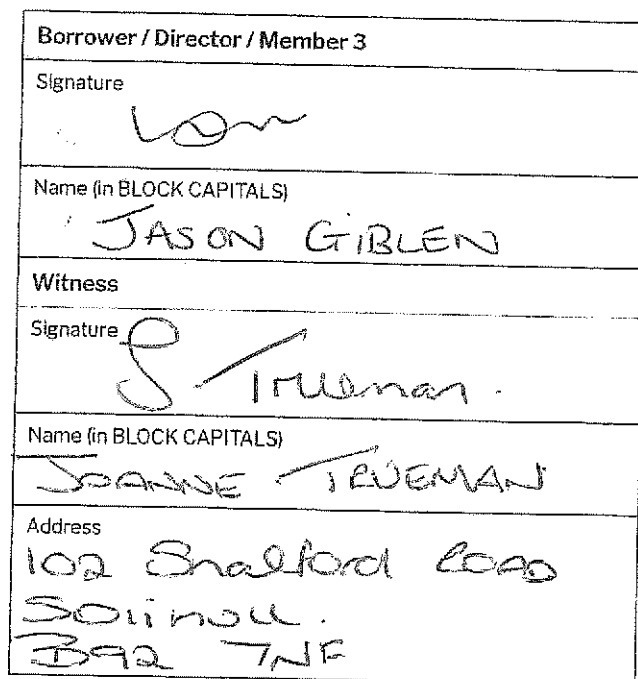 Borrower / Director / Member 3
Signature
Name (in BLOCK CAPITALS)
JASON GIBLEN
Witness
Signature
J Trueman.
Name (in BLOCK CAPITALS)
JOANNE TRUEMAN
Address
102 Shalford ROAD
Solihull.
B92 7NF